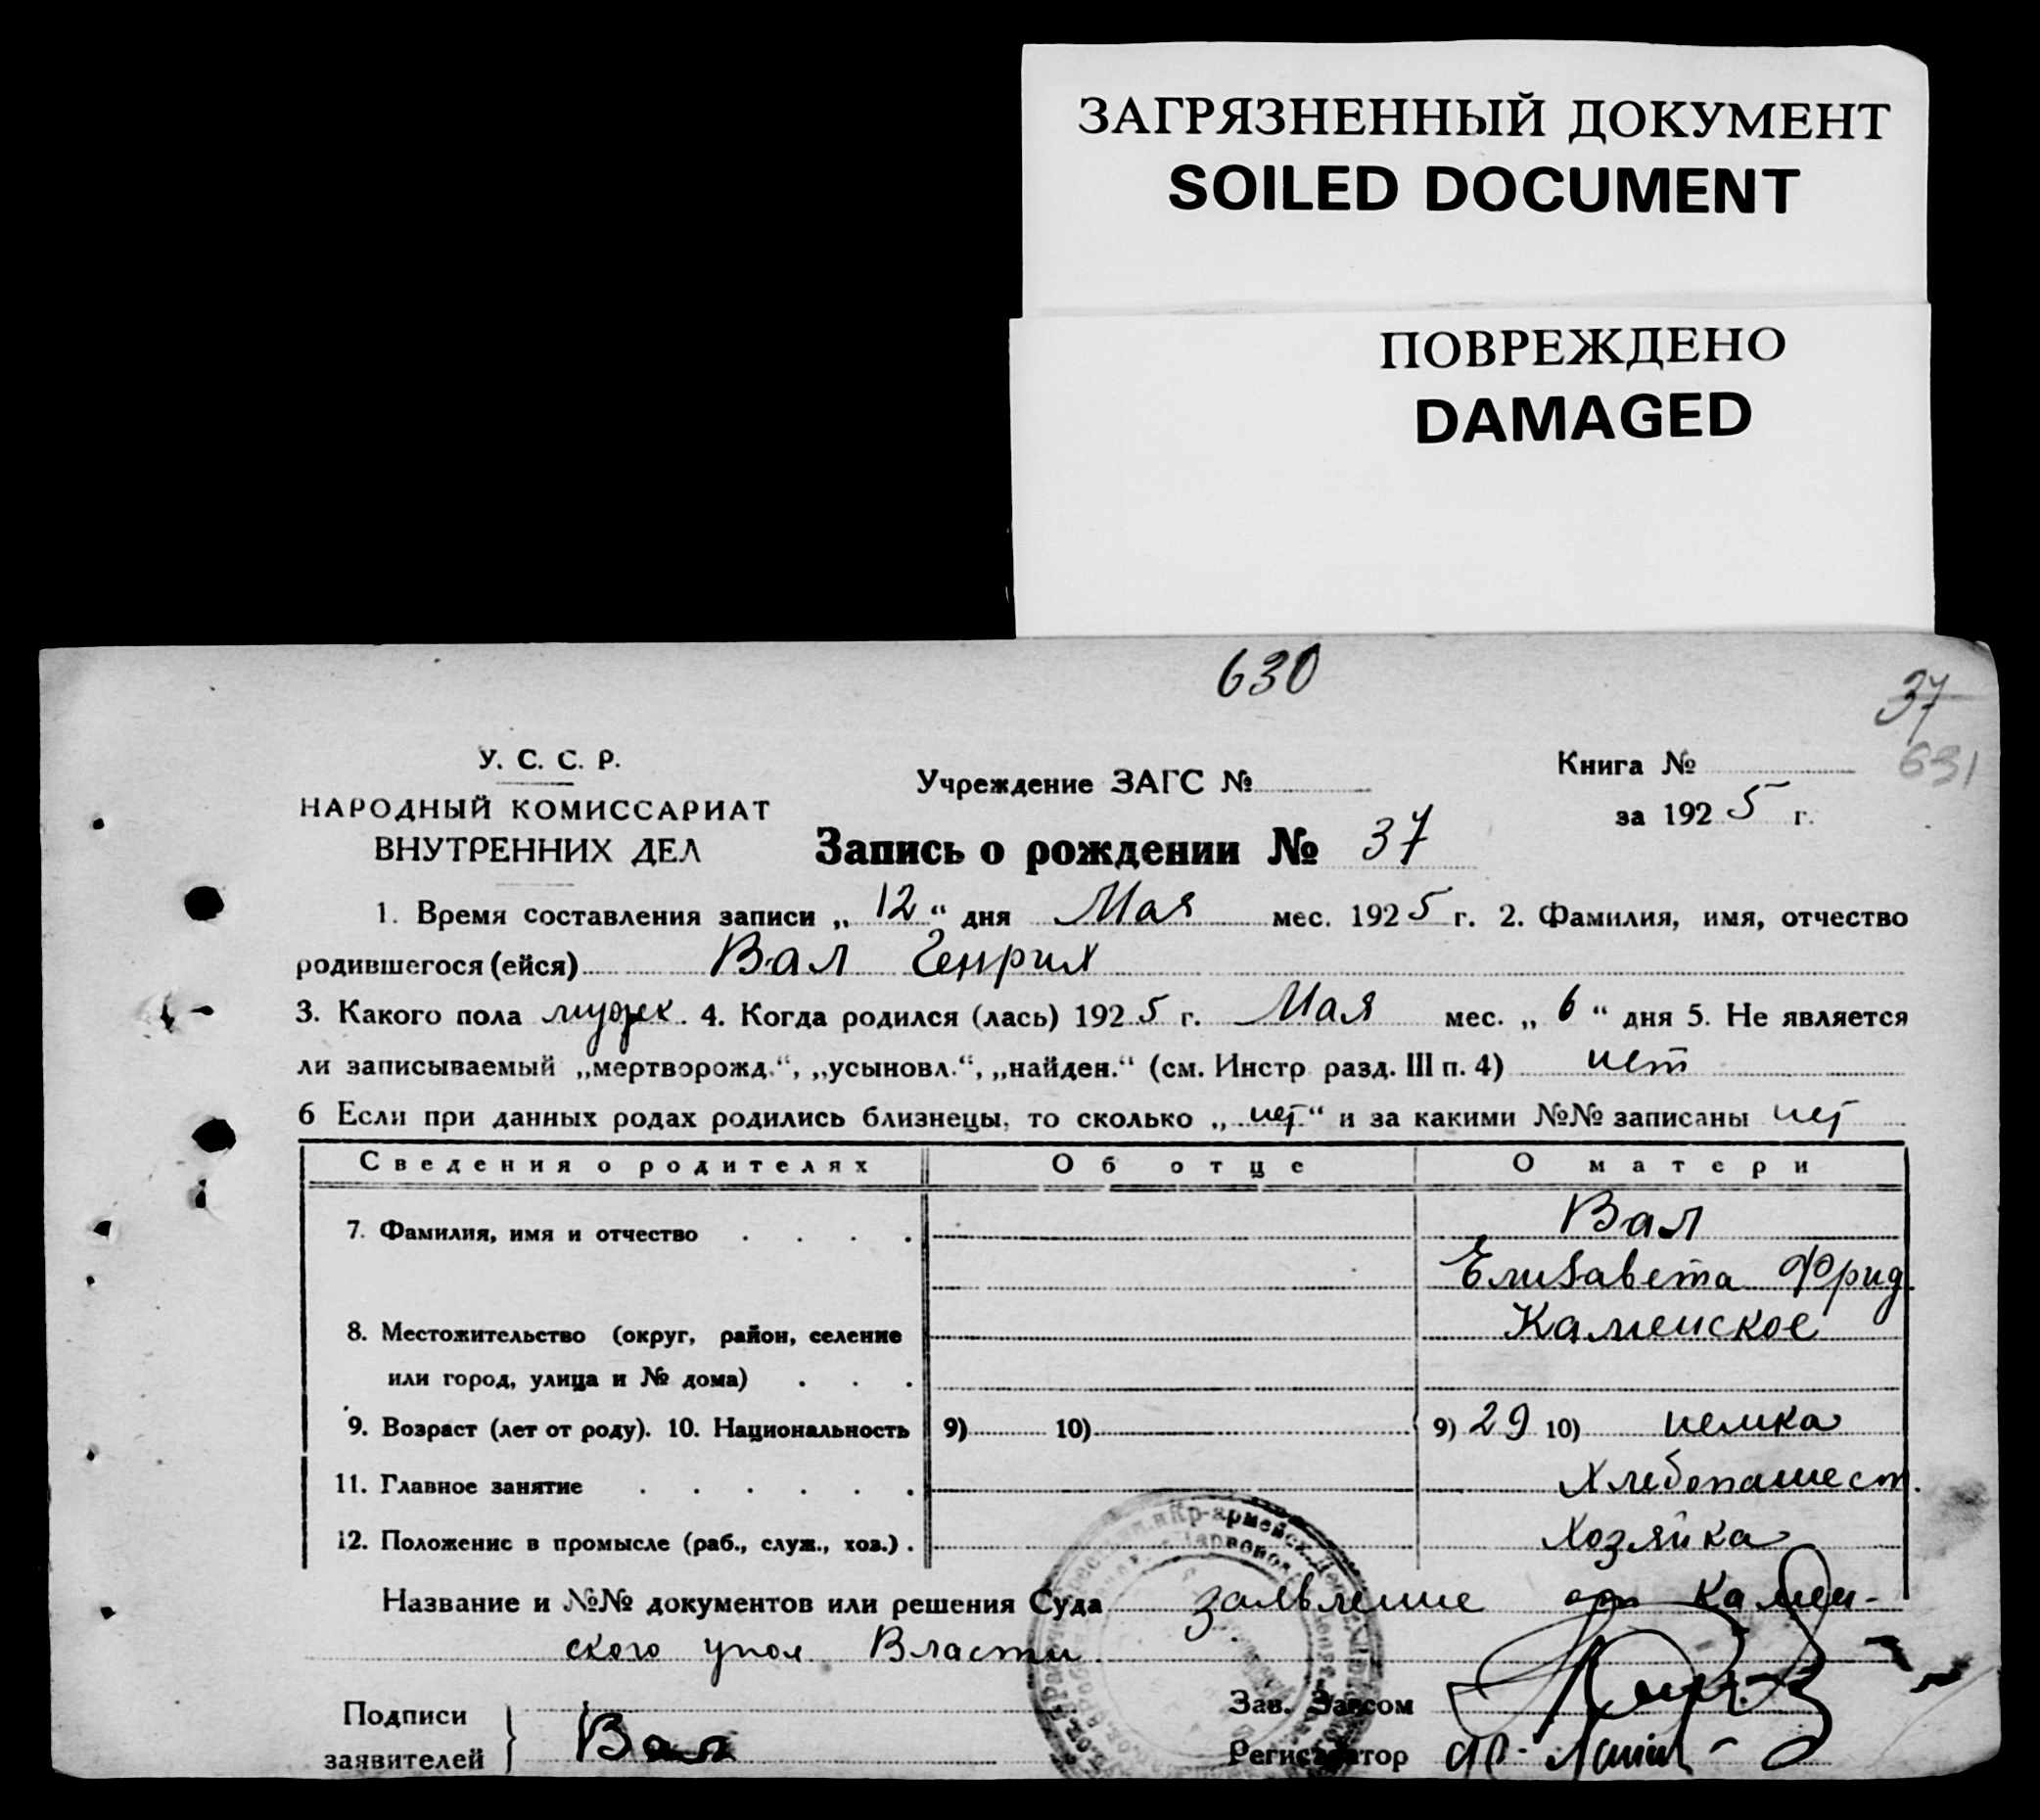 ЗАГРЯЗНЕННЫЙ ДОКУМЕНТ
SOILED DOCUMENT
ПОВРЕЖДЕНО
DAMAGED
630
37
631
У. С. С. Р.
НАРОДНЫЙ КОМИССАРИАТ
ВНУТРЕННИХ ДЕЛ
Учреждение ЗАГС №
Книга №
за 1925 г.
Запись о рождении № 37
1. Время составления записи „12“ дня Мая мес. 1925 г. 2. Фамилия, имя, отчество
родившегося (ейся) Вал Генрих
3. Какого пола мужск. 4. Когда родился (лась) 1925 г. Мая мес. „6“ дня 5. Не является
ли записываемый „мертворожд.“, „усыновл.“, „найден.“ (см. Инстр разд. III п. 4) нет
6 Если при данных родах родились близнецы, то сколько „нет“ и за какими №№ записаны нет
Сведения о родителях Об отце О матери
7. Фамилия, имя и отчество . . . . Вал
Елизавета Фрид.
8. Местожительство (округ, район, селение Каменское
или город, улица и № дома) . . .
9. Возраст (лет от роду). 10. Национальность 9) 10) 9) 29 10) немка
11. Главное занятие . . . . . . Хлебопашест.
12. Положение в промысле (раб., служ., хоз.) . Хозяйка
Название и №№ документов или решения Суда заявление от Камен-
ского упол Власти
Подписи
заявителей } Вал
Зав. Загсом
Регистратор